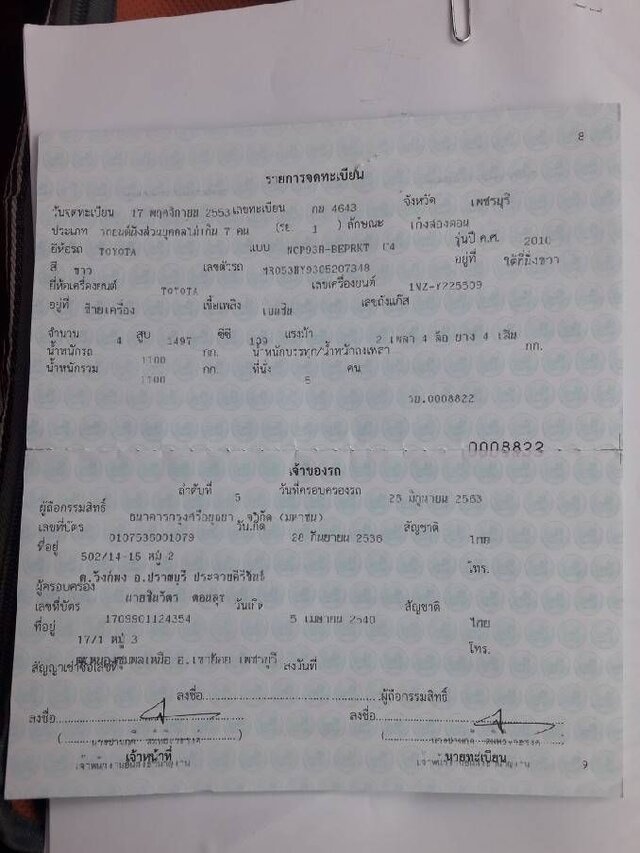 8
รายการจดทะเบียน
วันจดทะเบียน 17 พฤศจิกายน 2553 เลขทะเบียน กม 4643 จังหวัด เพชรบุรี
ประเภท รถยนต์นั่งส่วนบุคคลไม่เกิน 7 คน (รย. 1 ) ลักษณะ เก๋งสองตอน
ยี่ห้อรถ TOYOTA แบบ NCP93R-BEPRKT C4 รุ่นปี ค.ศ. 2010
สี ขาว เลขตัวรถ MR053HY9305207348 อยู่ที่ ใต้ที่นั่งขวา
ยี่ห้อเครื่องยนต์ TOYOTA เลขเครื่องยนต์ 1NZ-Y225509
อยู่ที่ ซ้ายเครื่อง เชื้อเพลิง เบนซิน เลขถังแก๊ส
จำนวน 4 สูบ 1497 ซีซี 109 แรงม้า 2 เพลา 4 ล้อ ยาง 4 เส้น
น้ำหนักรถ 1100 กก. น้ำหนักบรรทุก/น้ำหนักลงเพลา กก.
น้ำหนักรวม 1100 กก. ที่นั่ง 5 คน
รย.0008822
0008822
เจ้าของรถ
ลำดับที่ 5 วันที่ครอบครองรถ 25 มิถุนายน 2563
ผู้ถือกรรมสิทธิ์ ธนาคารกรุงศรีอยุธยา จำกัด (มหาชน)
เลขที่บัตร 0107536001079 วันเกิด 28 กันยายน 2536 สัญชาติ ไทย
ที่อยู่ 502/14-15 หมู่ 2 โทร.
ต.วังก์พง อ.ปราณบุรี ประจวบคีรีขันธ์
ผู้ครอบครอง นายชินวัตร
เลขที่บัตร 1709901124354 วันเกิด 5 เมษายน 2540 สัญชาติ ไทย
ที่อยู่ 17/1 หมู่ 3 โทร.
ต.หนองชุมพลเหนือ อ.เขาย้อย เพชรบุรี
สัญญาเช่าซื้อเลขที่ ลงวันที่
ลงชื่อ ผู้ถือกรรมสิทธิ์
ลงชื่อ ลงชื่อ
เจ้าหน้าที่ นายทะเบียน
9